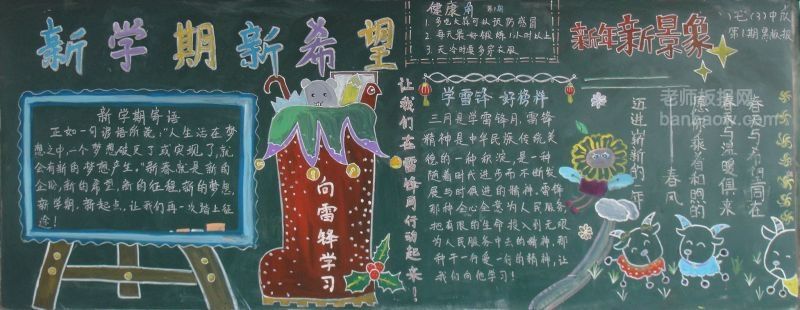 新学期新希望
健康角 第1期
1. 多吃大蒜可以预防感冒
2. 每天最好锻炼1小时以上
3. 天冷时要多穿衣服
新年新景象
(3)中队
第1期黑板报
新学期寄语
正如一句谚语所说,"人生活在梦
想之中,一个梦想破灭了或实现了,就
会有新的梦想产生。"新春就是新的
企盼,新的希望,新的征程,新的梦想,
新学期,新起点,让我们再一次踏上征
途!
向雷锋学习
让我们在雷锋月行动起来!
学雷锋 好榜样
三月是学雷锋月,雷锋
精神是中华民族传统美
德的一种积淀,是一种
随着时代进步而不断发
展与时俱进的精神,雷锋
那种全心全意为人民服务,
把有限的生命投入到无限
为人民服务中去的精神,那
种干一行爱一行的精神,让
我们向他学习!
春天与希望同在
春天与温暖俱来
春风
迈进崭新的一年
老师板报网
banbao.com